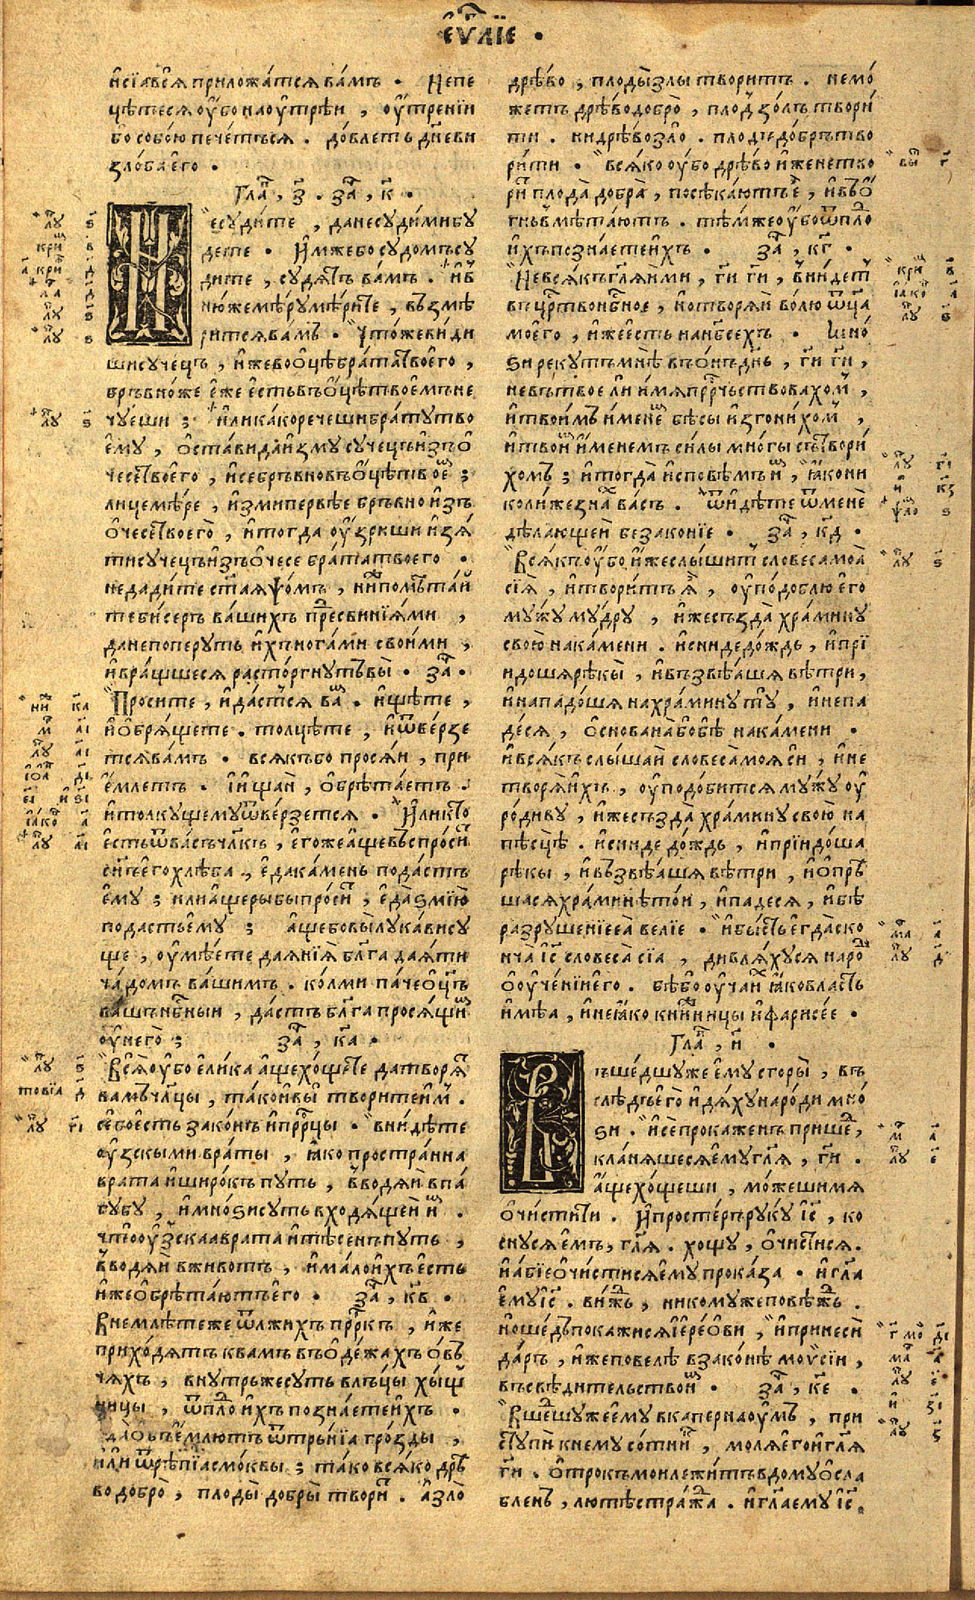 є҆ѵⷢ҇лїе .
и҆сїѧвсѧ приложа́тсѧ ва́мъ . Непе
цѣтесѧ оу҆бо наоу҆трѣи , оу҆тренїи
бо собою пече́тъсѧ . до́влетъ дн҃еви
ѕлоба є҆го .
Глаⷡ҇ , з҃ . заⷱ҇ , к҃ .
Несуди́те , данесуди́ми бу
дете . И҆мже бо судомъ су
дите , су́дѧтъ вамъ . и҆ въ
ню́же мѣру мѣ́рите , възмѣ
ри́тсѧ ва́мъ . Что́же ви́ди
ши сучець , и҆же во о҆цѣ бра́та твоего ,
бръвноже є҆же є҆сть въ о҆цѣ твое́мъ не
чу́еши ; и҆ли како речеши брату тво
ему , о҆ста́ви да и҆зму сучецъ и҆зъ о҆
чесе твоего , и҆се бръвно въ о҆цѣ твоеⷨ ;
лицемѣ́ре , и҆зми пе́рвѣе бръвно и҆зъ
о҆чесе твоего̀ , и҆ тогда оу҆́зриши и҆зѧ
ти сучецъ и҆зъ о҆чесе бра́та твоего .
недади́те ст҃аѧ ѱо́мъ , ни помѣта́й
те би́серъ ва́шихъ преⷣ сви́нїѧми ,
да не поперутъ и҆хъ нога́ми свои́ми ,
и҆ вра́щшесѧ расто́ргнутъ вы̀ . заⷱ҇ .
Просите , и҆ да́стсѧ ваⷨ . и҆щѣте ,
и҆ о҆брѧ́щете . толцѣте , и҆ ѿве́рзе
тсѧ вамъ . всѧкъ бо просѧ́и , при
е́млетъ . и҆ и҆ща́и , о҆брѣта́етъ .
и҆ толкущему ѿве́рзетсѧ . И҆ли кто
є҆сть ѿ ва́съ чл҃къ , є҆го́же а҆ще въспро́си
сы́нъ є҆го хлѣба , є҆да ка́мень пода́стъ
є҆му ; и҆ли а҆ще рыбы про́ситъ , є҆да ѕмїю̀
пода́сть є҆му ; а҆ще бо вы̀ лука́ви су
ще , оу҆мѣ́ете даѧ́нїѧ бл҃га даѧ́ти
ча́домъ ва́шимъ . ко́лми па́че о҆ц҃ъ
ва́шъ нбⷭ҇ныи , да́стъ бл҃га просѧ́щиⷨ
оу҆него̀ ; заⷱ҇ , ка .
Всѧ оу҆бо є҆ли́ка а҆ще хо́щете да творѧⷮ
вамъ чл҃цы , та́ко и҆ вы̀ твори́те и҆мъ .
се бо є҆сть зако́нъ и҆ прⷪ҇рцы . вни́дѣте
оу҆зкыми враты , ꙗ҆ко простра́нна
врата и҆ широ́къ путь , вводѧ́и въ па́
губу , и҆ мно́ѕи суть входѧ́щей иⷨ .
что оу҆́зскаа врата и҆ тѣ́сенъ путь ,
вводѧ́и въ живо́тъ , и҆ ма́ло и҆хъ є҆сть
и҆же о҆брѣта́ютъ є҆го . заⷱ҇ , кв .
Внемлѣте же ѿ лжи́хъ прⷪ҇ркъ , и҆же
прихо́дѧтъ къ вамъ въ о҆де́жахъ о҆вь
чѧхъ , внутрьже суть влъцы хы́щ
ницы , ѿ плоⷣ и҆хъ позна́ете и҆хъ .
Е҆да̀ о҆бъе́млютъ ѿ тръ́нїѧ гро́зды ,
и҆ли ѿ рѣ́пїѧ смо́квы ; та́ко всѧко дрѣ
во добро̀ , плоды̀ добры̀ твориⷮ . а҆ ѕло̀
дрѣ́во , плоды̀ ѕлы твори́тъ . немо́
жетъ дрѣ́во добро̀ , плод ѕо́лъ твори́
ти . ни дрѣ́во ѕло . плоды̀ добръ тво
ри́ти . Всѧ́ко оу҆бо дрѣ́во и҆же не тво
риⷮ плода̀ добра̀ , посѣка́ютъ є҆̀ , и҆ въ о҆́
гнь вмѣта́ютъ . тѣ́мже оу҆бо ѿ плоⷣ
и҆хъ позна́ете и҆хъ . заⷱ҇ , кг .
Не всѧ́къ гл҃ѧи ми , гⷭ҇и гⷭ҇и , вни́детъ
въ црⷭ҇тво нбⷭ҇ное , но творѧ́й во́лю ѿц҃а
моего̀ , и҆же є҆сть на нб҃сехъ . Мно́
ѕи рекутъ мнѣ въ о҆́нъ дн҃ь , гⷭ҇и гⷭ҇и ,
не въ твое ли и҆мѧ прⷪ҇рчьствовахоⷨ ,
и҆ твои́мъ и҆мене́мъ бѣ́сы и҆згони́хоⷨ ,
и҆ твоиⷨ и҆менемъ си́лы мно́гы сътвори́
хомъ ; и҆ тогда̀ и҆сповѣ́мъ иⷨ , ꙗ҆́ко ни
коли́же зна́хъ ва́съ . ѿи҆дѣте ѿ менѐ
дѣ́лающеи без зако́нїе . заⷱ҇ , кд .
Всѧ́къ оу҆бо и҆же слы́шитъ словеса̀ моа̀
сїѧ̀ , и҆ твори́тъ ѧ҆̀ , оу҆подо́блю є҆го
му́жу му́дру , и҆же създа̀ хра́мину
свою̀ на ка́мени . и҆ сни́де до́ждь , и҆ прїи
идошѧ рѣ́кы , и҆ възвѣ́ѧшѧ вѣ́три ,
и҆ нападо́шѧ на хра́мину ту , и҆ не па
де́сѧ , о҆снована̀ бо бѣ̀ на ка́мени .
и҆ всѧ́къ слы́шай словеса̀ моѧ̀ си , и҆ не
творѧ̀ и҆хъ , оу҆подо́битсѧ му́жу оу҆
ро́диву , и҆же създа̀ хра́мину свою̀ на
пѣсцѣ̀ . и҆ сни́де до́ждь , и҆ прїидо́ша
рѣ́кы , и҆ възвѣ́ѧшѧ вѣ́три , и҆ о҆прѣ́
шасѧ хра́минѣ то́и , и҆ паде́сѧ , и҆ бѣ̀
разруше́нїе еѧ̀ ве́лїе . и҆ бы́сть є҆гда̀ ско
нча̀ і҆с҃ словеса̀ сїа̀ , дивлѧ́хусѧ наро́ди
о҆ оу҆че́нїи є҆го . бѣ̀ бо оу҆чаⷯ ꙗ҆́ко вла́сть
и҆мѣ́ѧ , и҆ не ꙗ҆́ко кни́жницы и҆ фарисе́е .
Глаⷡ҇ , и҃ .
Съшедшу же є҆му с горы̀ , въ
слѣдъ є҆го и҆дѧху наро́ди мно́
ѕи . и҆ сѐ прокаже́нъ прише́дъ ,
кла́нѧшесѧ є҆му гл҃ѧ , гⷭ҇и .
а҆ще хо́щеши , мо́жеши мѧ
о҆чи́стити . И҆ просте́ръ ру́ку і҆с҃ , ко
снусѧ є҆мъ , гл҃ѧ . хощу , о҆чи́стисѧ .
и҆ а҆бїе о҆чи́стисѧ є҆му прока́за . и҆ гл҃а
є҆му і҆с҃ . ви́жь , ни кому́же повѣ́жь .
но ше́дъ покажи́сѧ і҆ере́ови , и҆ принеси́
да́ръ , и҆же повелѣ̀ в зако́нѣ моѵ̈си́и ,
въ свѣдительство и҆мъ . заⷱ҇ , ке .
Вше́дшу же є҆му в капернаоу҆мъ , при
ступѝ к нему со́тниⷦ , молѧ̀ є҆го и҆ гл҃ѧ
гⷭ҇и . о҆трокъ мои лежи́тъ в дому̀ о҆сла́
бленъ , лю́тѣ стра́жа . и҆ гл҃а є҆му і҆с҃ .